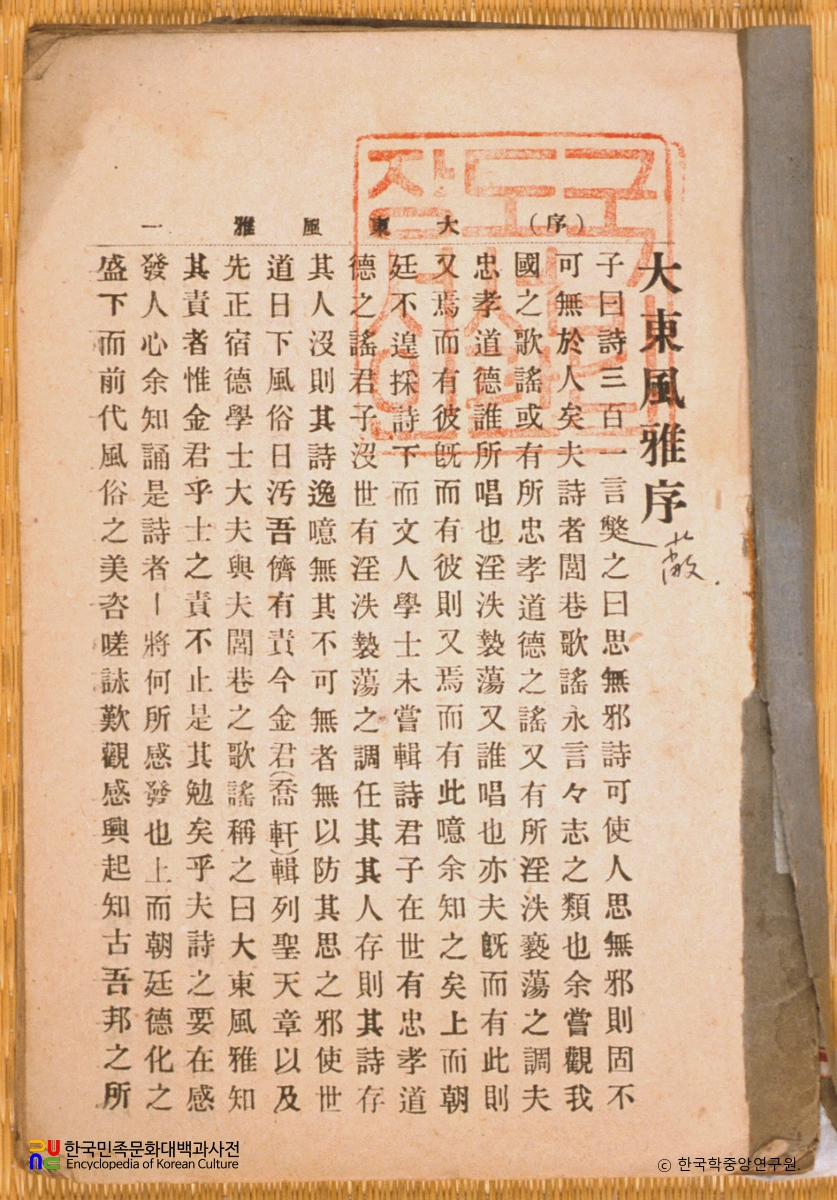 (序) 大東風雅 一
大東風雅序
蔽
子曰詩三百一言獘之曰思無邪詩可使人思無邪則固不
可無於人矣夫詩者閭巷歌謠永言々志之類也余嘗觀我
國之歌謠或有所忠孝道德之謠又有所淫泆褻蕩之調夫
忠孝道德誰所唱也淫泆褻蕩又誰唱也亦夫旣而有此則
又焉而有彼旣而有彼則又焉而有此噫余知之矣上而朝
廷不遑採詩下而文人學士未嘗輯詩君子在世有忠孝道
德之謠君子沒世有淫泆褻蕩之調任其其人存則其詩存
其人沒則其詩逸噫無其不可無者無以防其思之邪使世
道日下風俗日汚吾儕有責今金君(喬軒)輯列聖天章以及
先正宿德學士大夫與夫閭巷之歌謠稱之曰大東風雅知
其責者惟金君乎士之責不止是其勉矣乎夫詩之要在感
發人心余知誦是詩者ー將何所感發也上而朝廷德化之
盛下而前代風俗之美咨嗟詠歎觀感興起知古吾邦之所
한국민족문화대백과사전
Encyclopedia of Korean Culture
© 한국학중앙연구원.